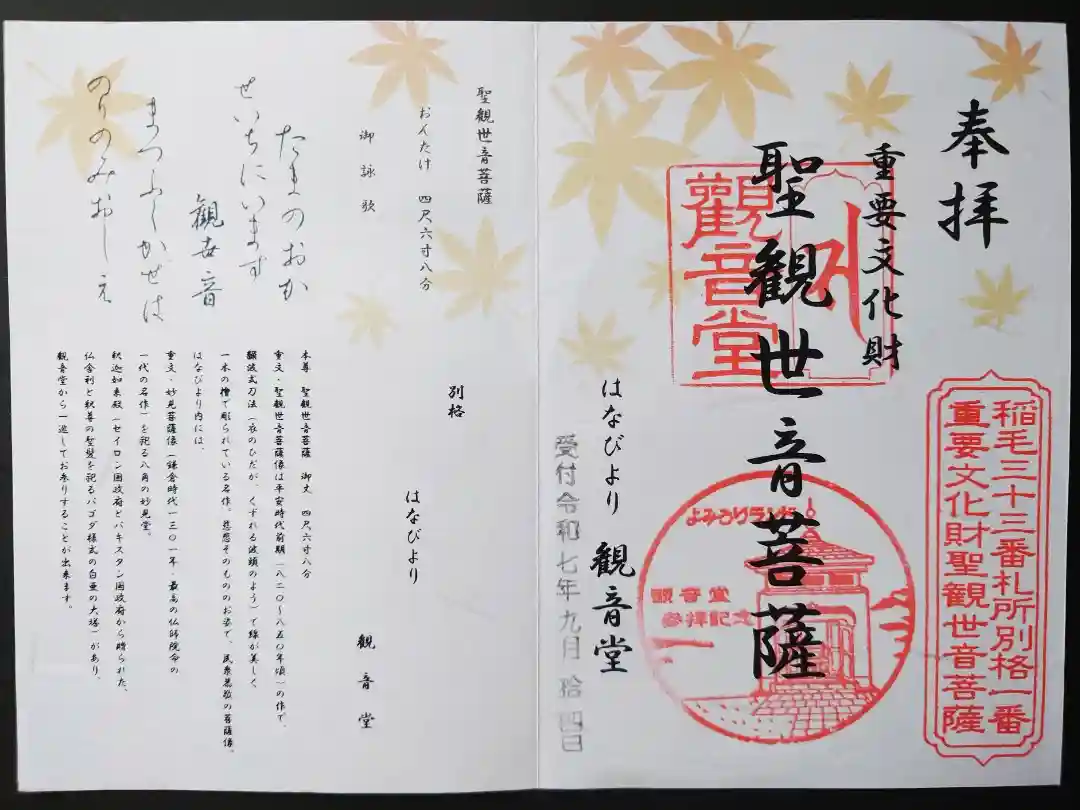 奉拝
重要文化財
聖観世音菩薩
はなびより 観音堂
受付令和七年九月 拾四日
稲毛三十三番札所別格一番
重要文化財聖観世音菩薩
觀音堂
よみうりランド
観音堂
参拝記念
聖観世音菩薩
おんたけ 四尺六寸八分
御詠歌
たまのおか
せいちにいます
観世音
まつふくかぜは
のりのみおしえ
別格
はなびより
観音堂
本尊 聖観世音菩薩 御丈 四尺六寸八分
重文・聖観世音菩薩像は平安時代前期(八二〇〜八五〇年頃)の作で、
飜波式刀法(衣のひだが、くずれる波頭のよう)で線が美しく
一本の檜で彫られている名作。慈悲そのもののお姿で、民衆慈敬の菩薩像。
はなびより内には、
重文・妙見菩薩像(鎌倉時代一三〇一年・最高の仏師院命の
一代の名作)を祀る八角の妙見堂。
釈迦如来殿(セイロン国政府とパキスタン国政府から贈られた、
仏舎利と釈尊の聖髪を祀るパゴダ様式の白亜の大塔)があり、
観音堂から一巡してお参りすることが出来ます。